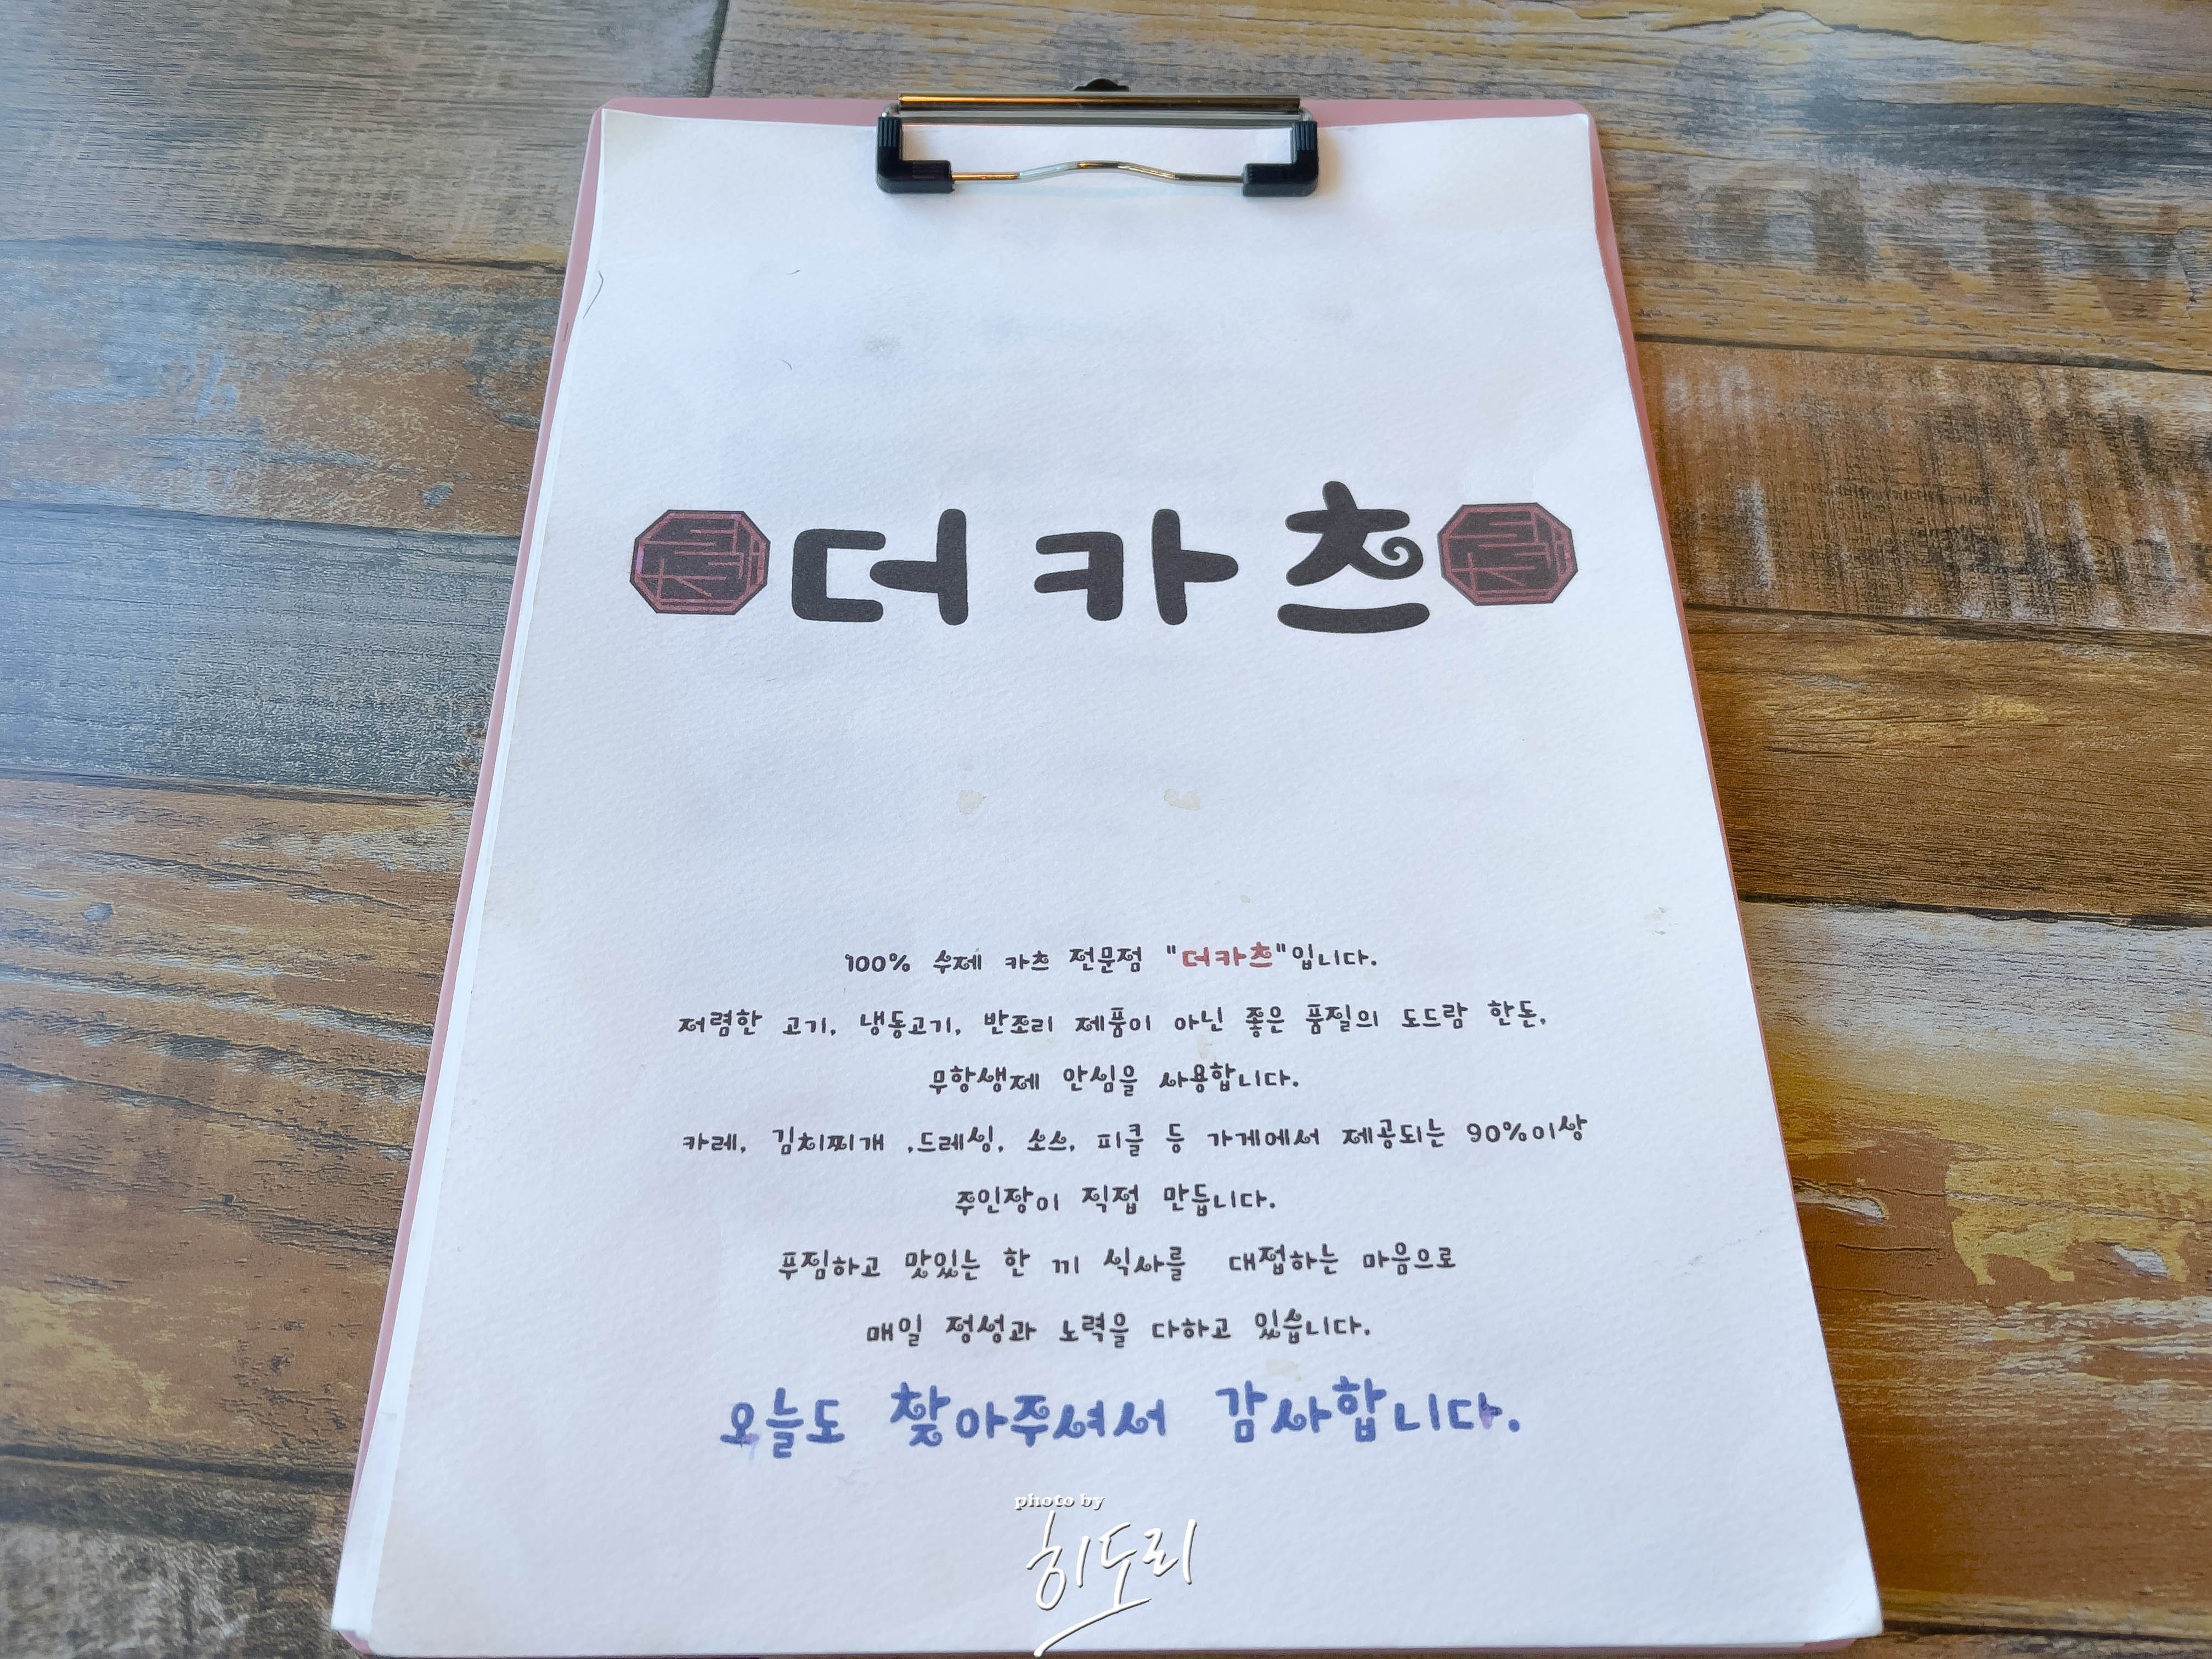 더카츠
100% 수제 카츠 전문점 "더카츠"입니다.
저렴한 고기, 냉동고기, 반조리 제품이 아닌 좋은 품질의 도드람 한돈,
무항생제 안심을 사용합니다.
카레, 김치찌개 ,드레싱, 소스, 피클 등 가게에서 제공되는 90%이상
주인장이 직접 만듭니다.
푸짐하고 맛있는 한 끼 식사를 대접하는 마음으로
매일 정성과 노력을 다하고 있습니다.
오늘도 찾아주셔서 감사합니다.
photo by
히도리